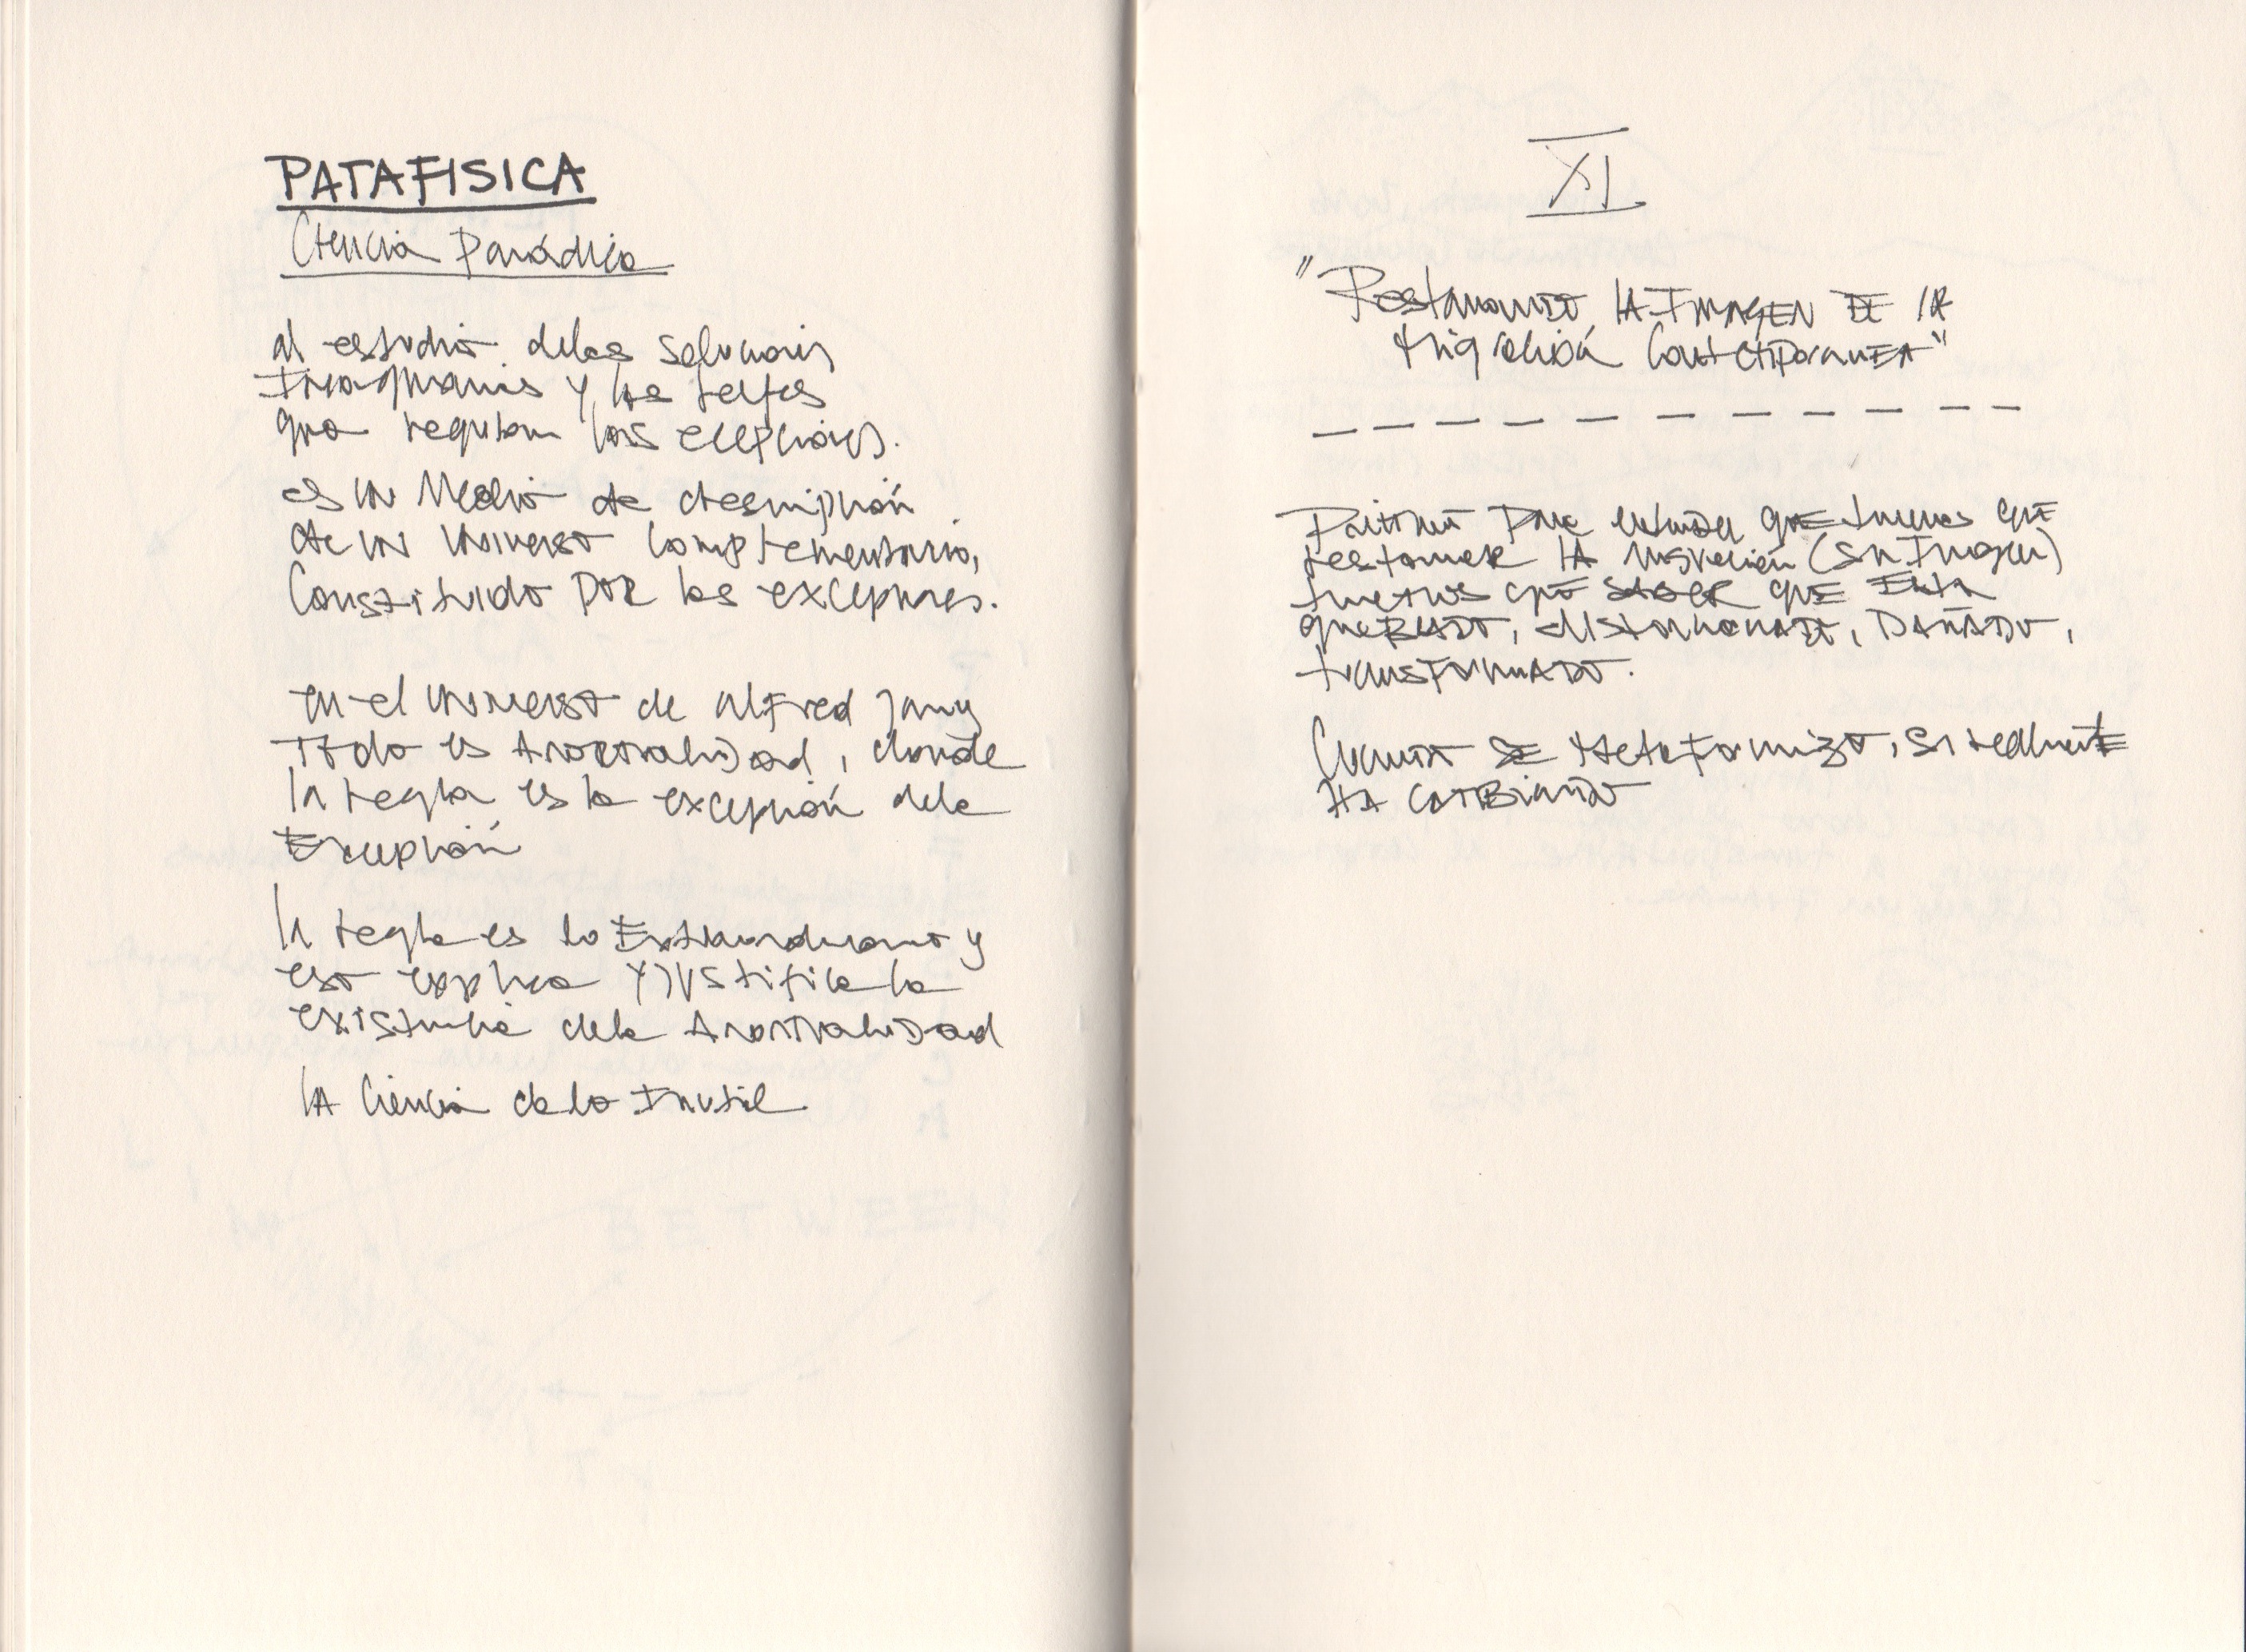 PATAFISICA
Ciencia Paródica
al estudio de las soluciones
Imaginarias y las leyes
que regulan las excepciones.
es un Medio de descripción
de un Universo complementario,
Constituido POR las excepciones.
en el universo de Alfred Jarry
Todo es Anormalidad, donde
la regla es la excepción de la
Excepción
la regla es lo Extraordinario y
eso explica y justifica la
existencia de la Anormalidad
LA Ciencia de lo Inutil
XI
"Restaurando LA IMAGEN DE LA
Migración Contemporanea"
para entender que tenemos que
restaurar LA Migración (su Imagen)
tenemos que SABER que Esta
queBRADO, distorcionado, DAÑADO,
transformado.
Cuanto se, si realmente
HA CAMBIADO